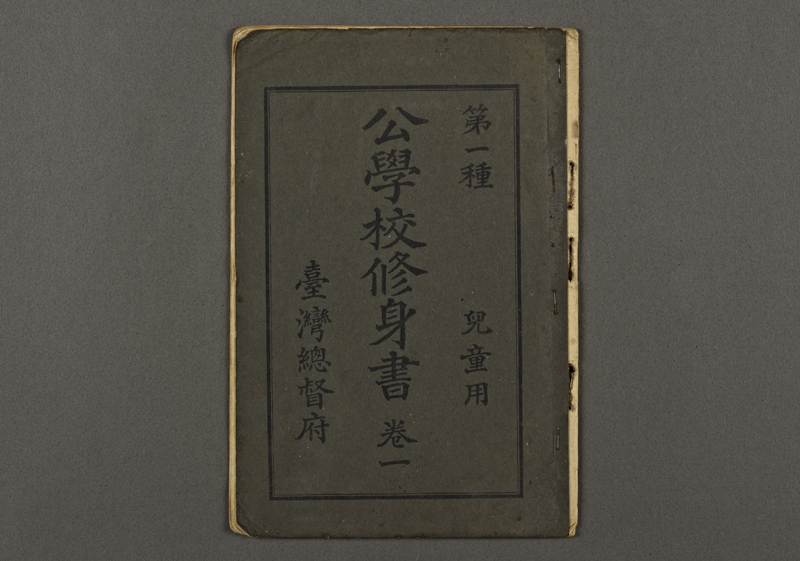 第一種 兒童用
公學校修身書 卷一
臺灣總督府